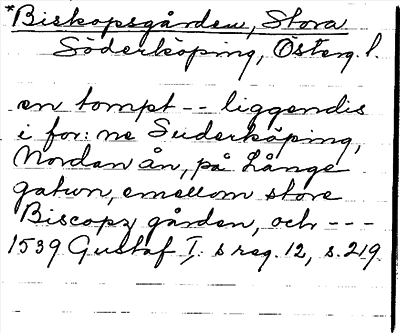 *Biskopsgården, Stora
Söderköping, Österg. l.
en tompt -- liggendis
i for: ne Suderköping,
Nordan ån, på Långe
gatun, emellom store
Biscopz gården, och ---
1539 Gustaf I: s reg. 12, s. 219.